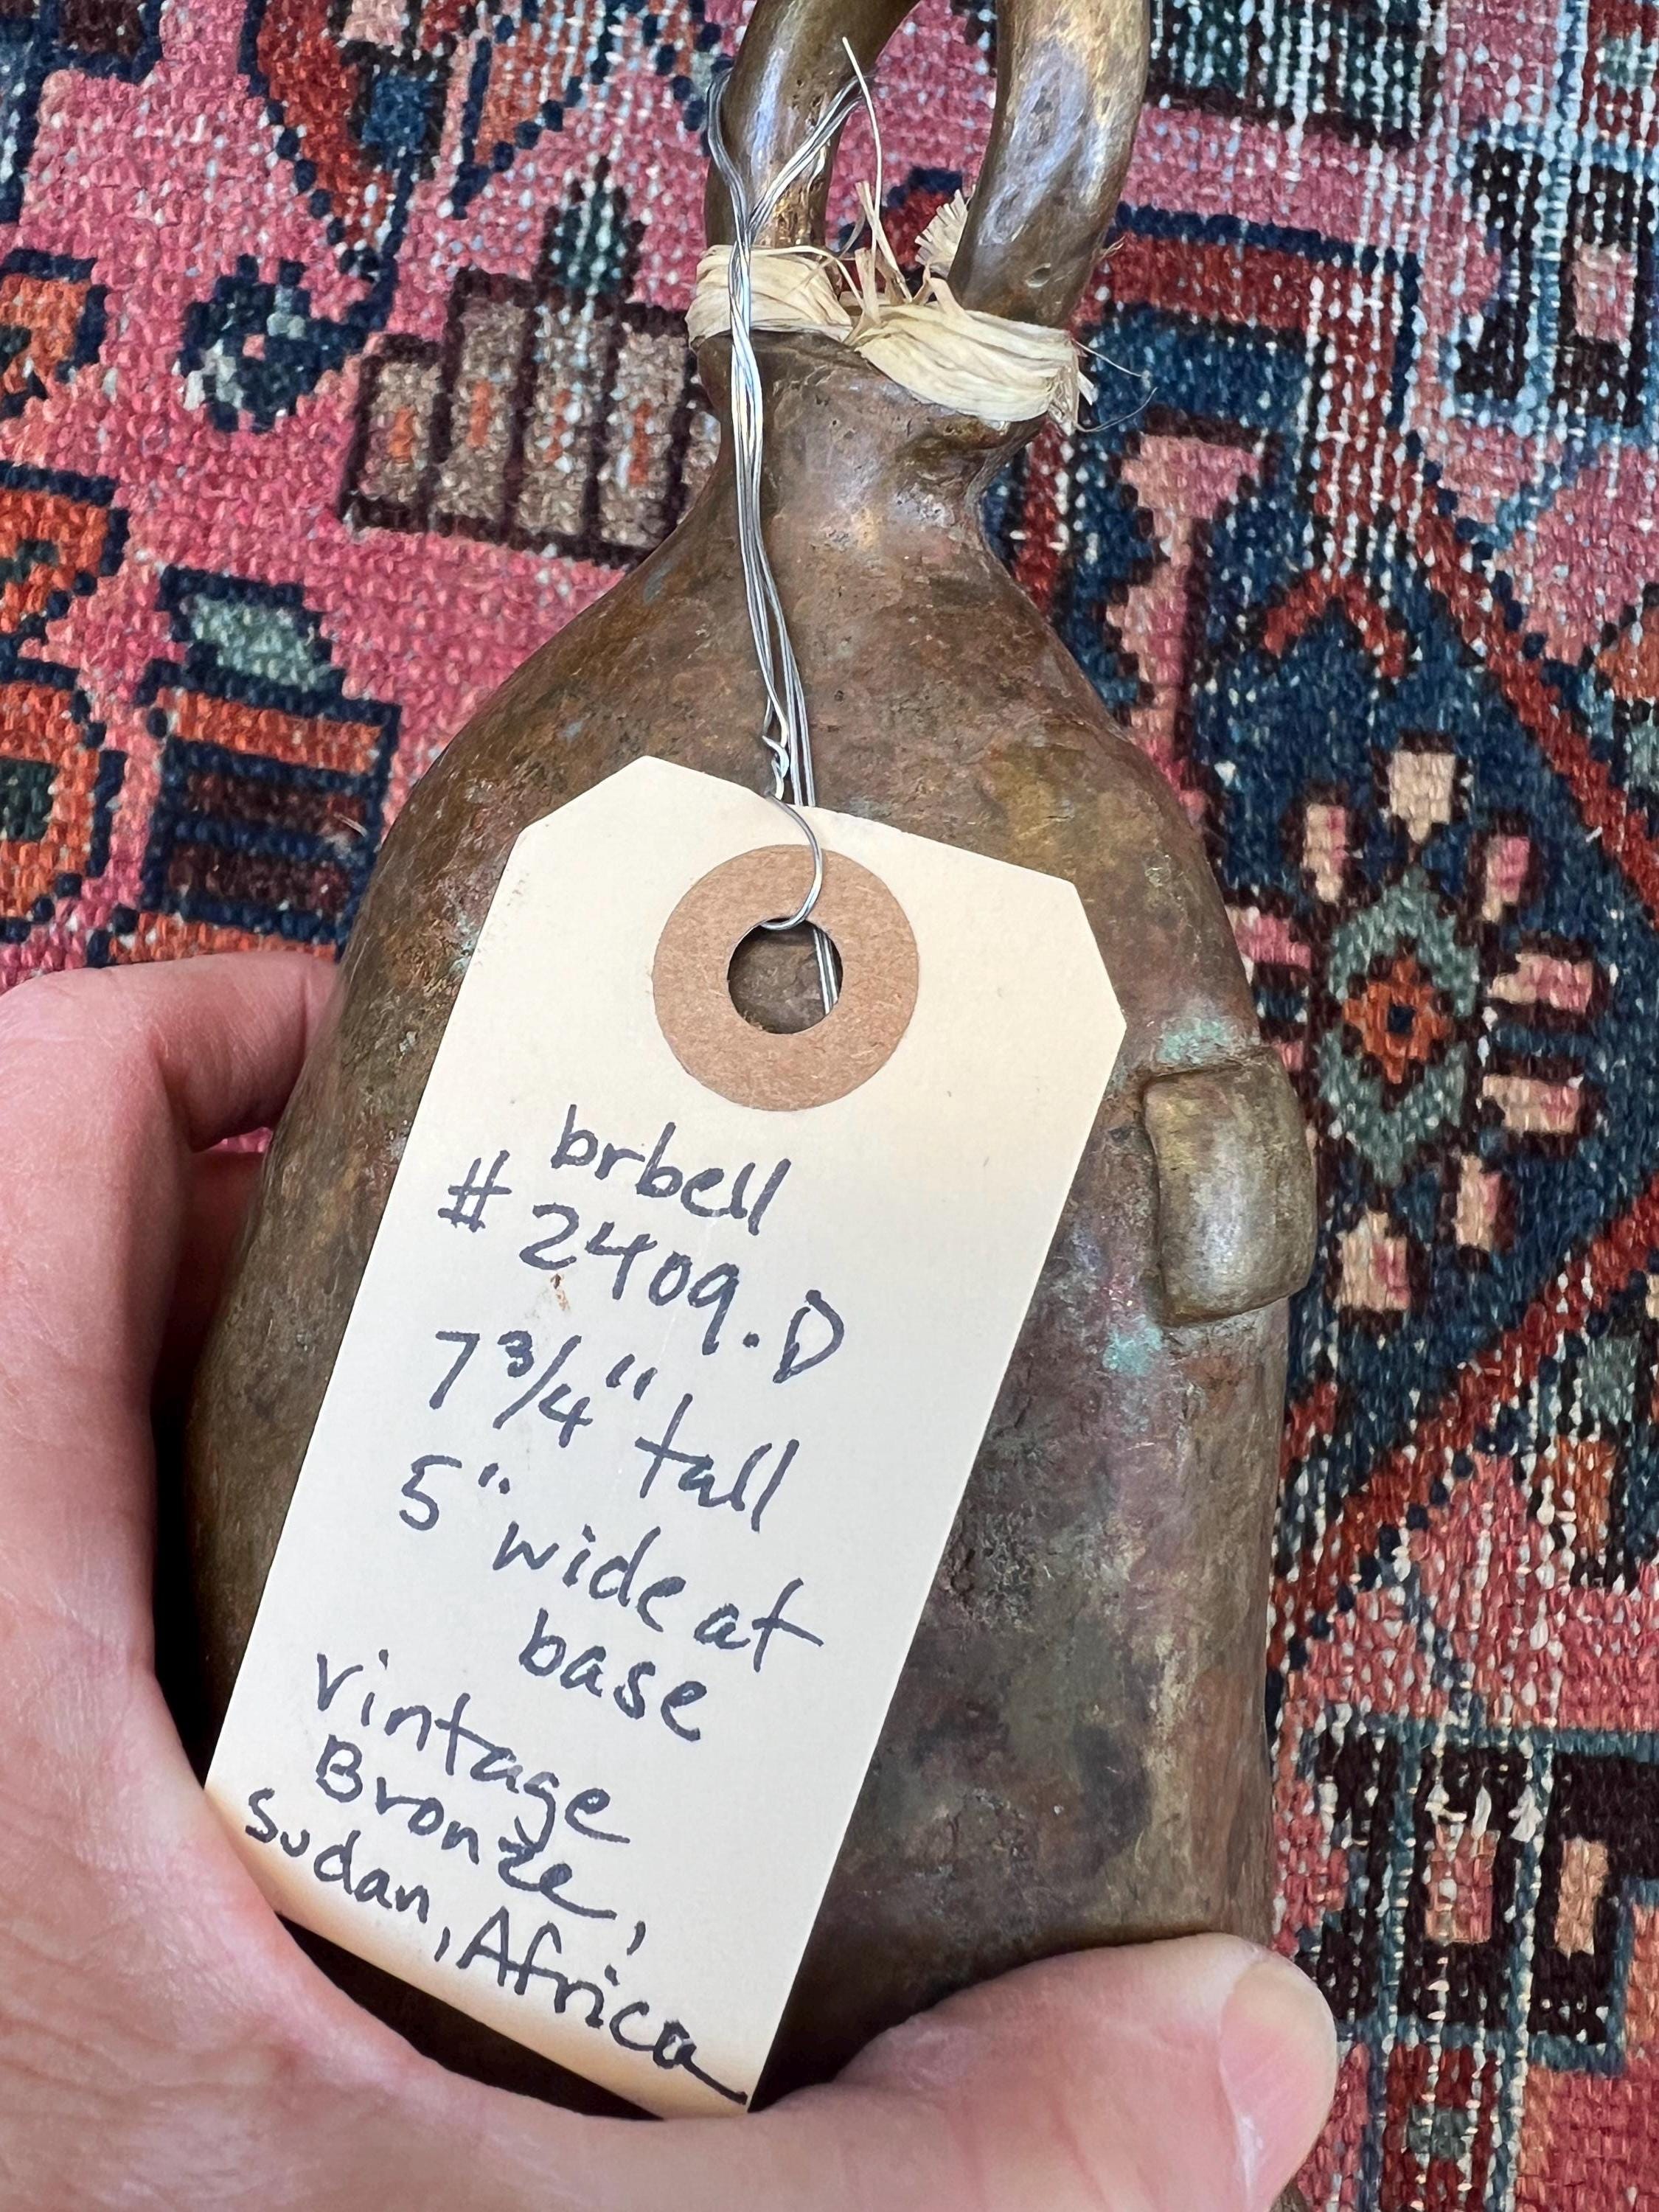 brbell
#2409.D
7 3/4" tall
5" wide at
base
vintage
Bronze,
Sudan, Africa